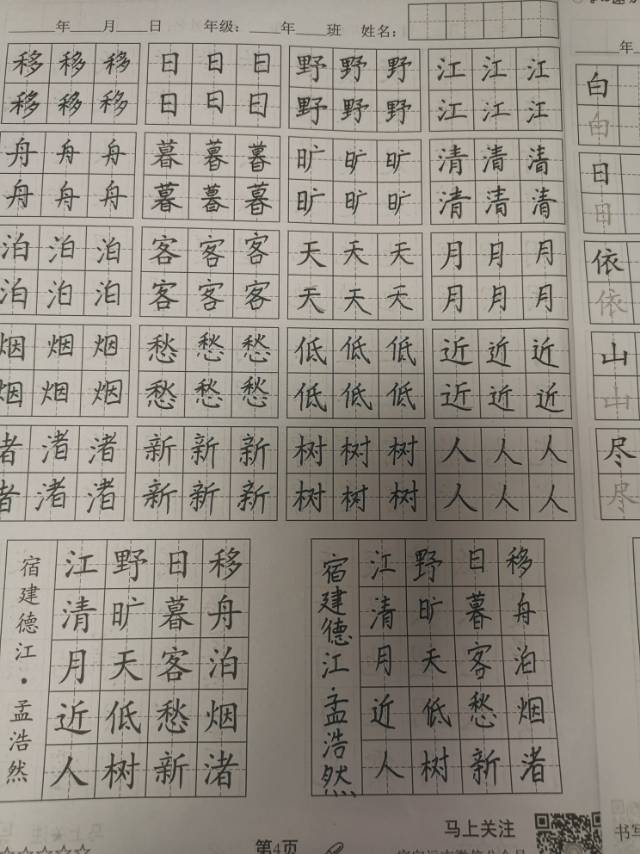 年 月 日 年级： 年 班 姓名：
移 移 移 日 日 日 野 野 野 江 江 江
移 移 移 日 日 日 野 野 野 江 江 江
舟 舟 舟 暮 暮 暮 旷 旷 旷 清 清 清
舟 舟 舟 暮 暮 暮 旷 旷 旷 清 清 清
泊 泊 泊 客 客 客 天 天 天 月 月 月
泊 泊 泊 客 客 客 天 天 天 月 月 月
烟 烟 烟 愁 愁 愁 低 低 低 近 近 近
烟 烟 烟 愁 愁 愁 低 低 低 近 近 近
渚 渚 渚 新 新 新 树 树 树 人 人 人
渚 渚 渚 新 新 新 树 树 树 人 人 人
移舟泊烟渚
日暮客愁新
野旷天低树
江清月近人
宿建德江·孟浩然
移舟泊烟渚
日暮客愁新
野旷天低树
江清月近人
宿建德江·孟浩然
马上关注
第4页
年
白
白
日
日
依
依
山
山
尽
尽
书写